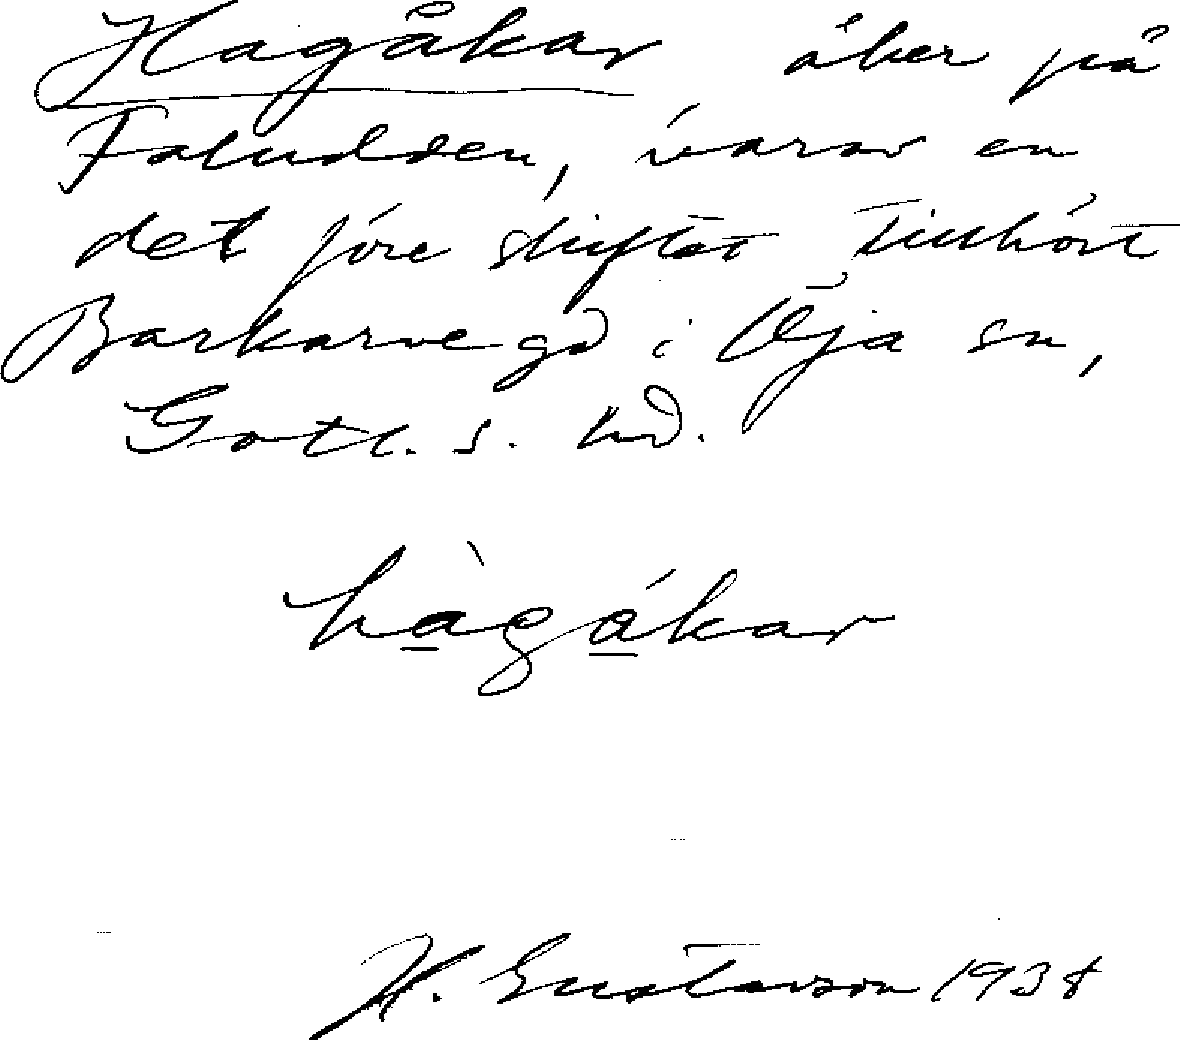 Hagåkar åker på
Faludden, varav en
del före skiftet tillhört
Barkarve gd i Öja sn,
Gotl. s. hd.
hàgákar
H. Gustavson 1938